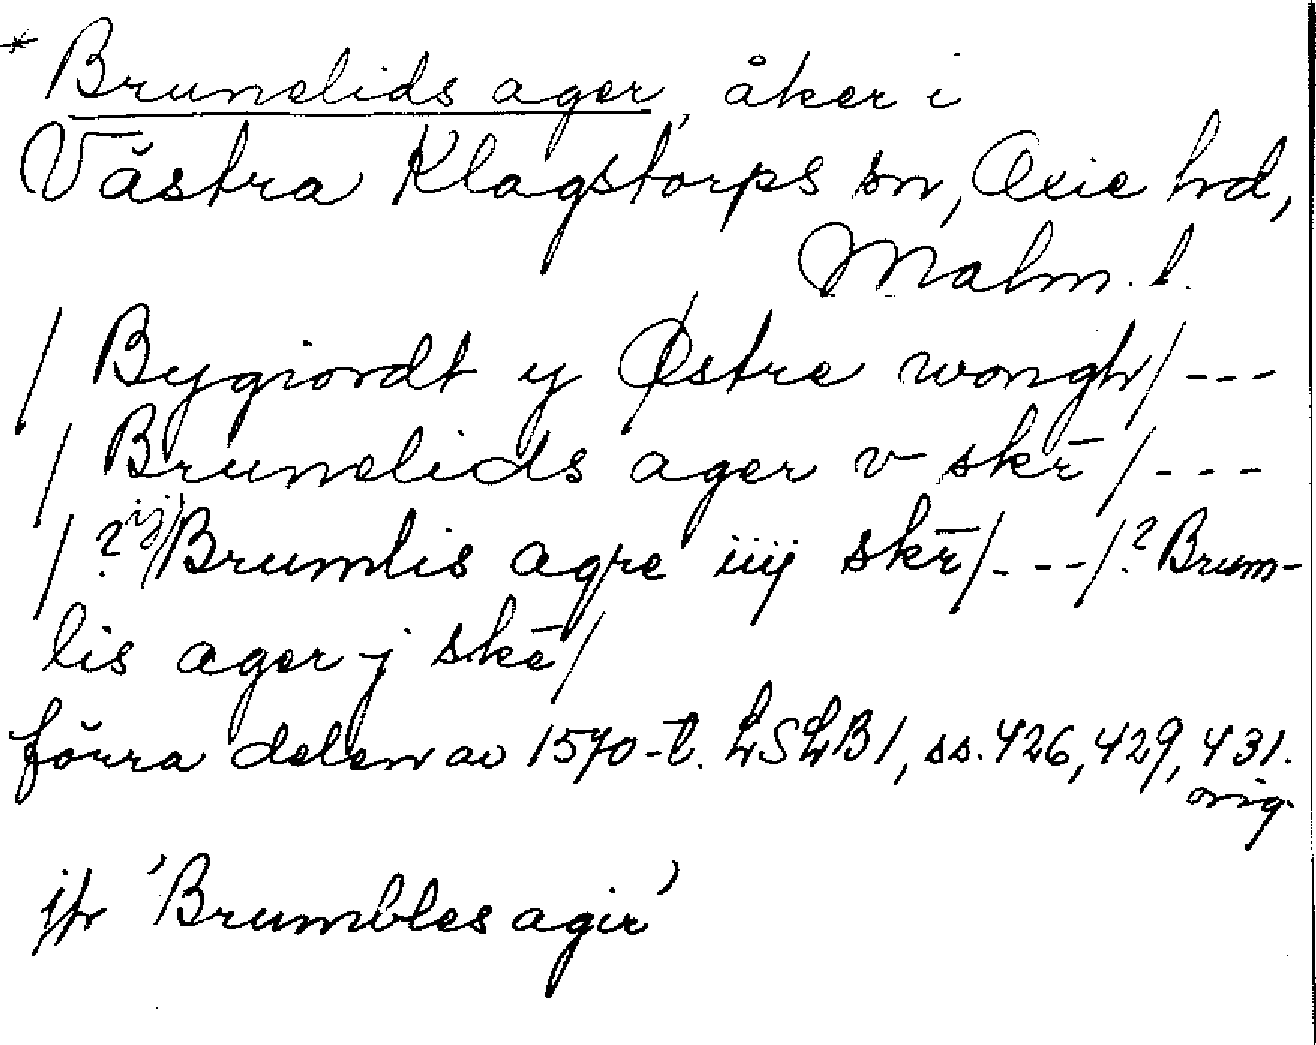 * Brunelids ager, åker i
Västra Klagstorps sn, Oxie hd,
Malm. l.
/ Bygiordt y Østre wongh/ ---
/ Brunelids ager v skr̄ /---
/ ? Brumlis agre iiij skr̄/---/? Brum-
lis ager j skr̄/
förra delen av 1570-t. LSLB1, ss. 426, 429, 431.
orig.
jfr 'Brumbles agir'